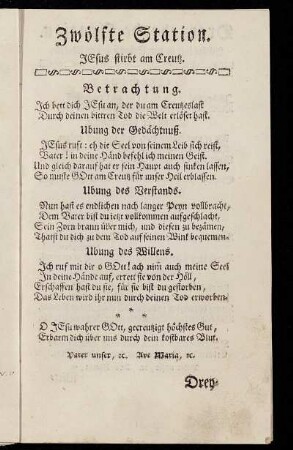 Zwölfte Station.
JEsus stirbt am Creutz.
Betrachtung.
Ich bett dich JEsu an, der du am Creutzeslast
Durch deinen bittren Tod die Welt erlöset hast.
Ubung der Gedächtnuß.
JEsus ruft: eh die Seel von seinem Leib sich reist,
Vater! in deine Händ befehl ich meinen Geist.
Und gleich darauf hat er sein Haupt auch sinken lassen,
So muste GOtt am Creutz für unser Heil erblassen.
Ubung des Verstands.
Nun hast es endlichen nach langer Peyn vollbracht,
Dem Vater bist du ietzt vollkommen aufgeschlacht,
Sein Zorn brann über mich, und diesen zu bezämen,
Thatst du dich zu dem Tod auf seinen Wink bequemen.
Ubung des Willens.
Ich ruf mit dir o GOtt! ach nim̄ auch meine Seel
In deine Hände auf, errett sie von der Höll,
Erschaffen hast du sie, für sie bist du gestorben,
Das Leben wird ihr nun durch deinen Tod erworben.
* * *
O JEsu wahrer GOtt, gecreutzigt höchstes Gut,
Erbarm dich über uns durch dein kostbares Blut.
Vater unser, ꝛc. Ave Maria, ꝛc.
Drey-